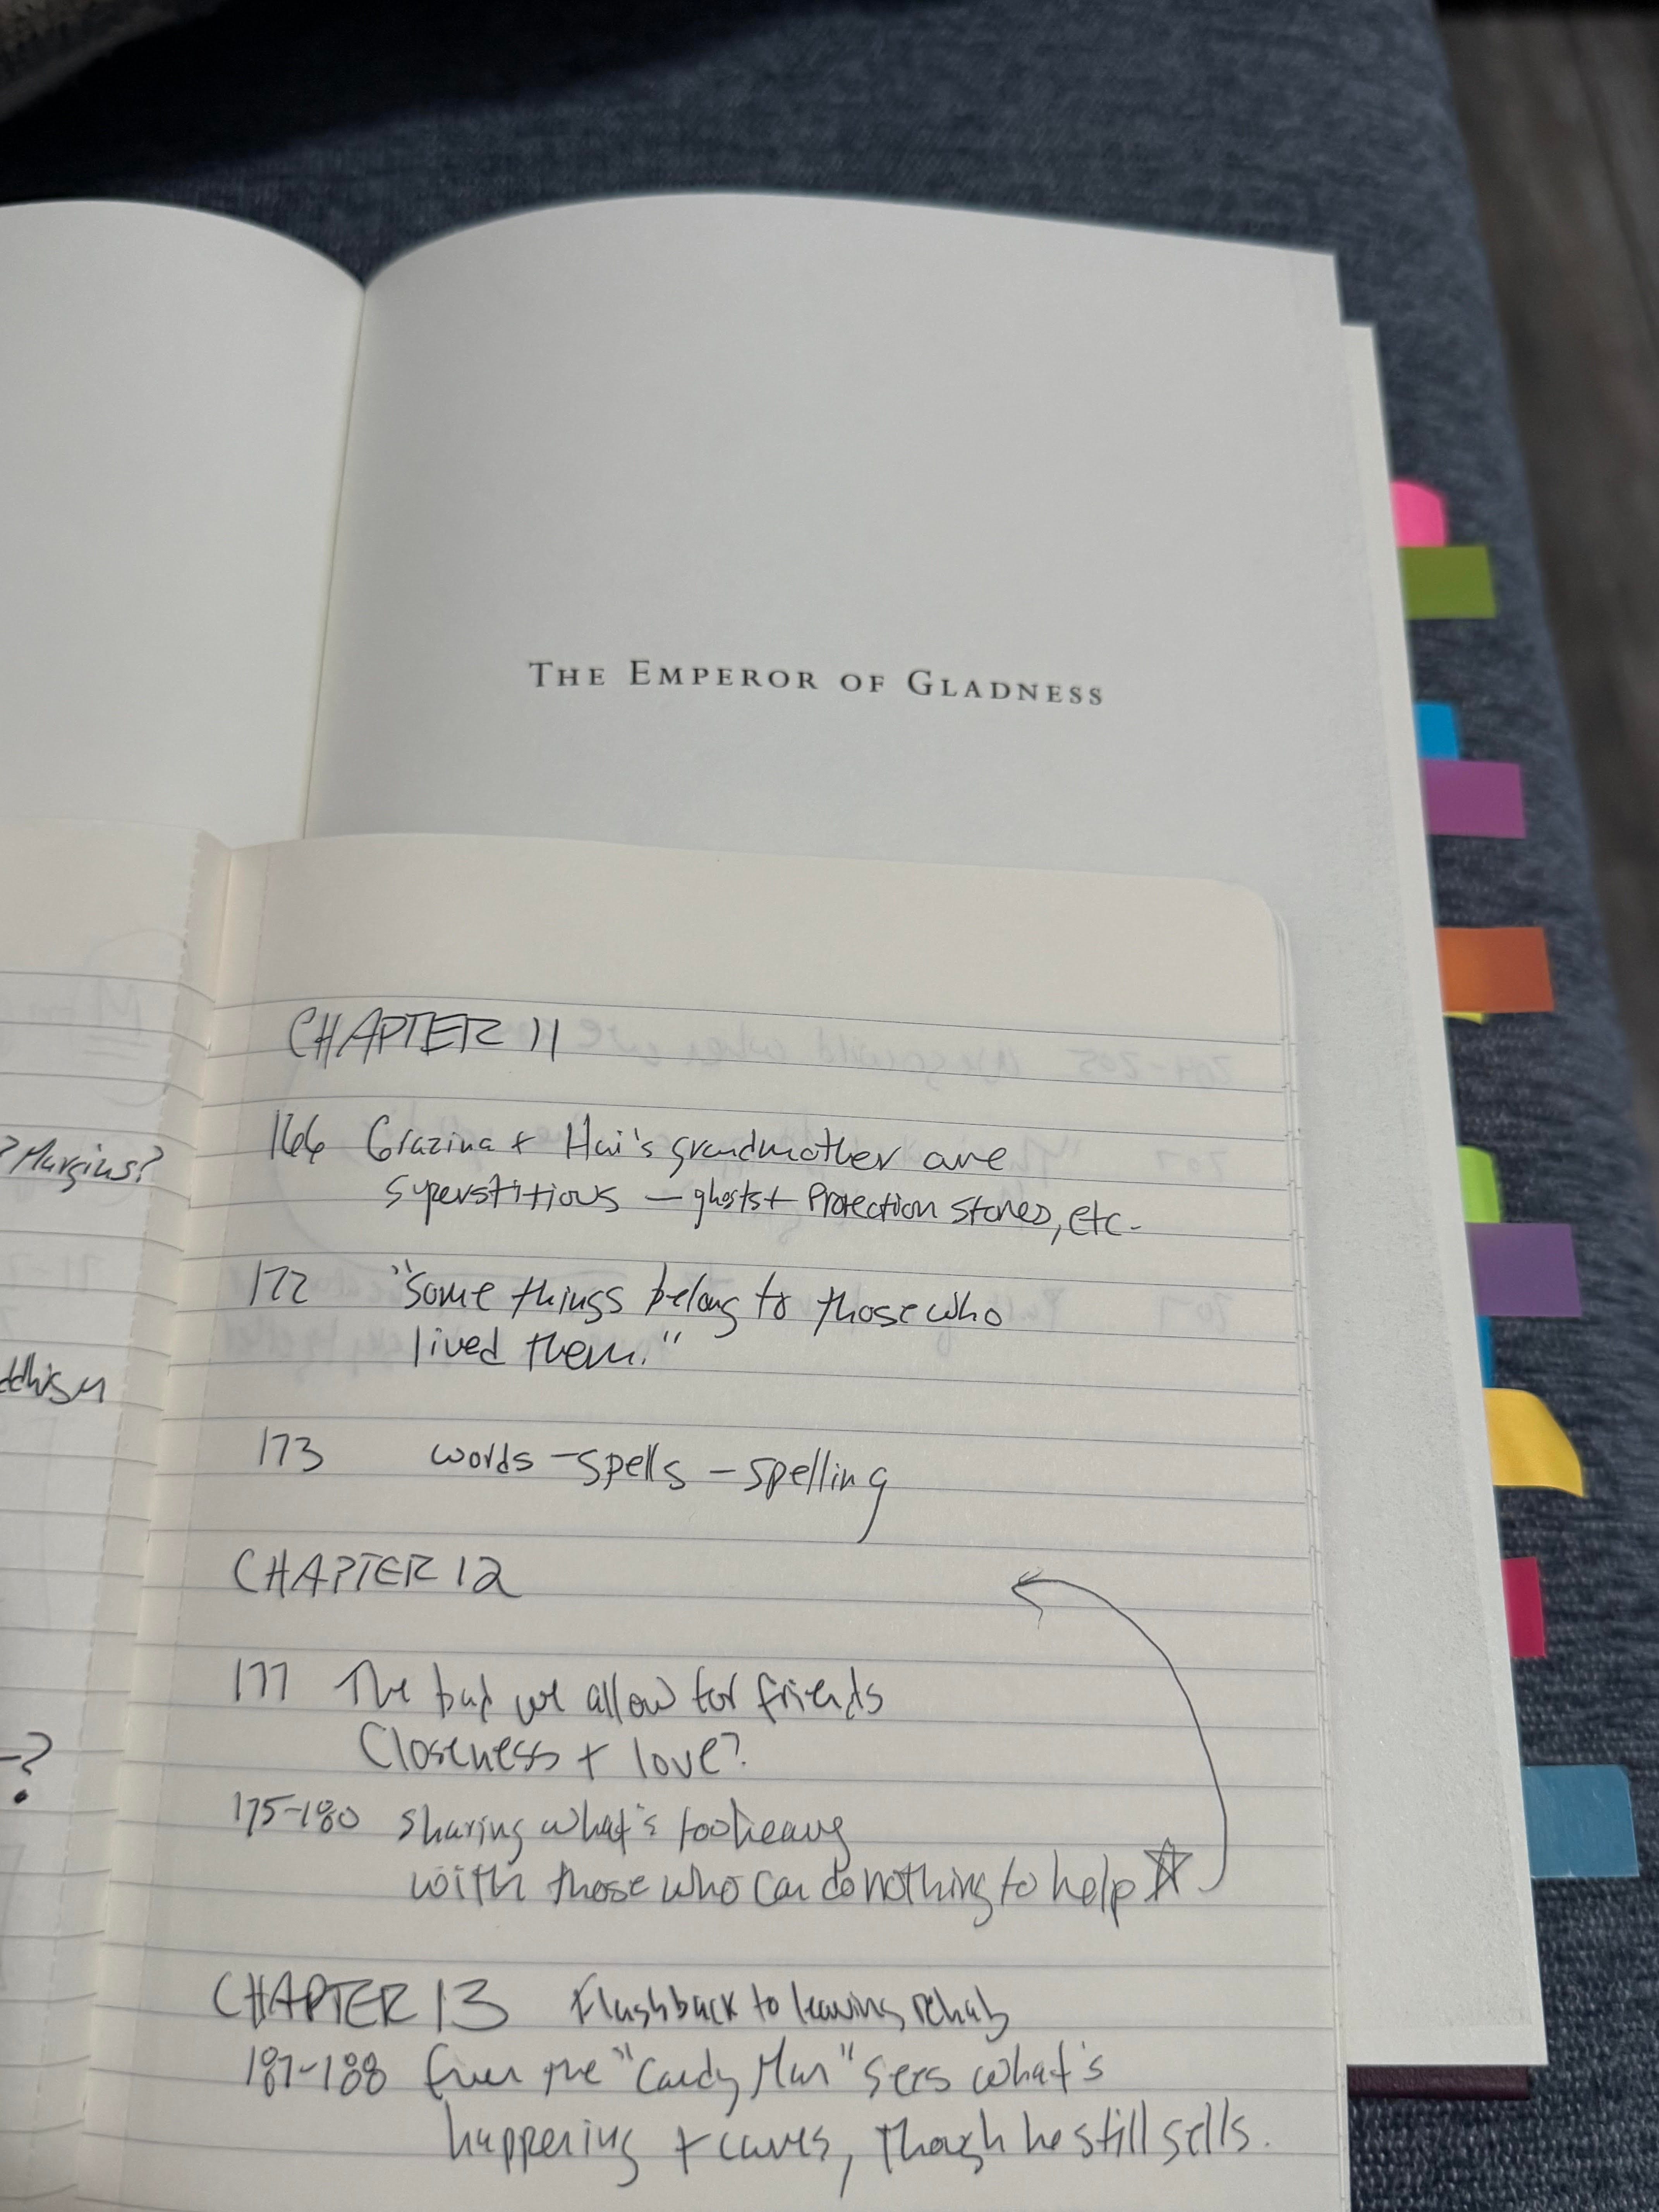 THE EMPEROR OF GLADNESS
? Margins?
ddhism
-?
CHAPTER 11
166 Grazina + Hai's grandmother are
superstitious — ghosts + protection stones, etc.
172 "Some things belong to those who
lived them."
173 words - spells - spelling
CHAPTER 12
177 The bad we allow for friends
Closeness + love?
175-180 sharing what's too heavy
with those who can do nothing to help ☆
CHAPTER 13 Flashback to leaving rehab
187-188 Even the "Candy Man" sees what's
happening + cares, though he still sells.